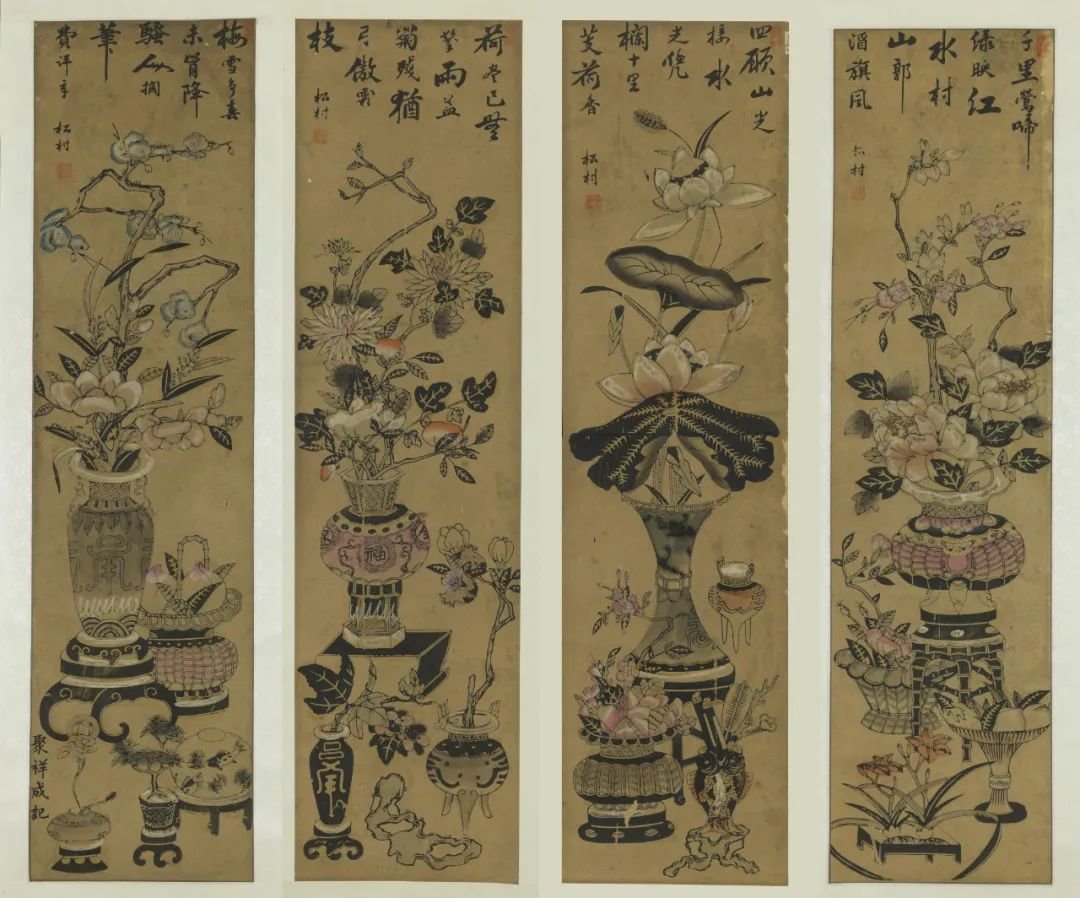 千里鶯啼
绿映红
水村
山郭
酒旗风
松村
四顾山光
接水
光凭
欄十里
芰荷香
松村
荷尽已無
擎雨盖
菊残猶
有傲霜
枝
松村
福
梅雪争春
未肯降
騷人搁
筆
費评章
松村
聚祥成記